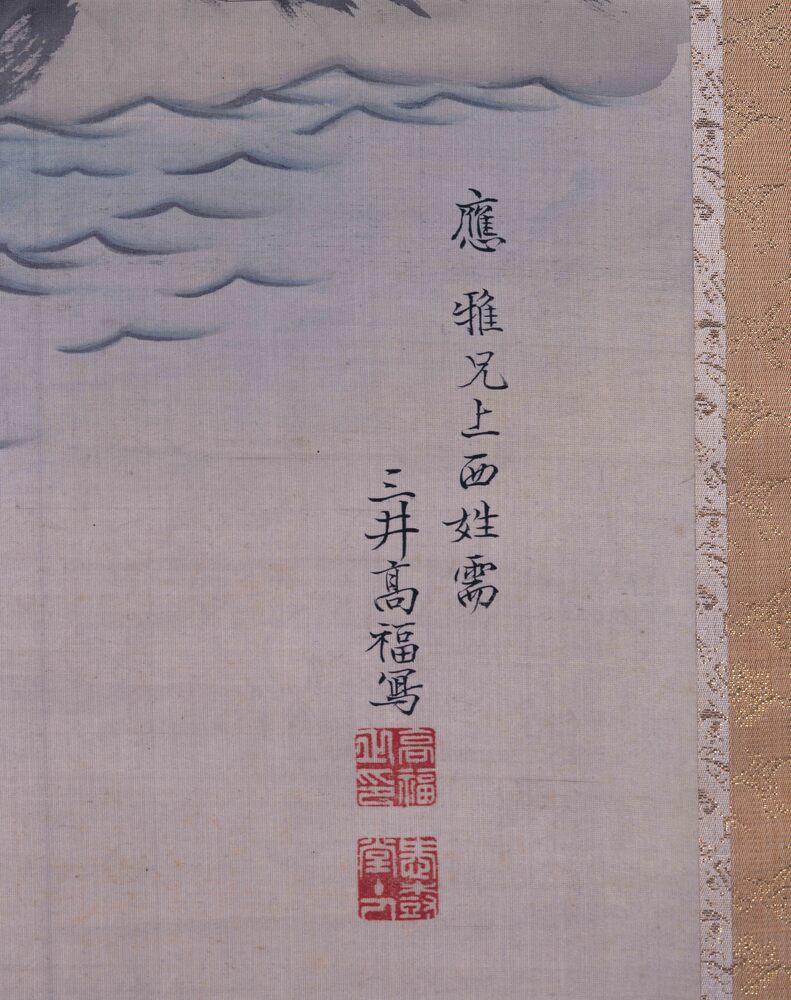 應 雅兄上西姓需
三井高福寫
高福之印